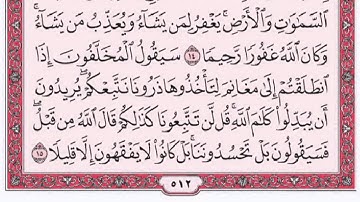 السَّمَٰوَٰتِ وَالْأَرْضِ ۚ يَغْفِرُ لِمَن يَشَاءُ وَيُعَذِّبُ مَن يَشَاءُ ۚ
وَكَانَ اللَّهُ غَفُورًا رَّحِيمًا ١٤ سَيَقُولُ الْمُخَلَّفُونَ إِذَا
انطَلَقْتُمْ إِلَىٰ مَغَانِمَ لِتَأْخُذُوهَا ذَرُونَا نَتَّبِعْكُمْ ۖ يُرِيدُونَ
أَن يُبَدِّلُوا كَلَٰمَ اللَّهِ ۚ قُل لَّن تَتَّبِعُونَا كَذَٰلِكُمْ قَالَ اللَّهُ مِن قَبْلُ ۖ
فَسَيَقُولُونَ بَلْ تَحْسُدُونَنَا ۚ بَلْ كَانُوا لَا يَفْقَهُونَ إِلَّا قَلِيلًا ١٥
٥١٢